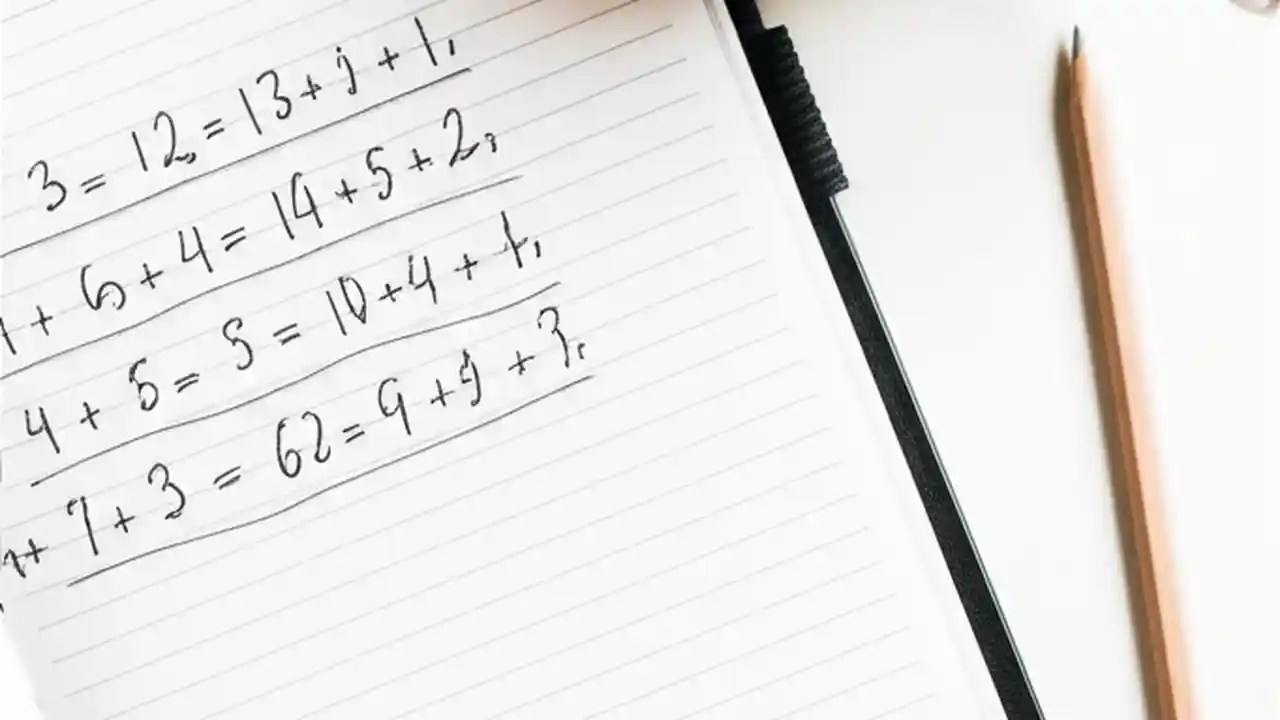 3 = 12 = 13 + j + 1.
+ 6 + 4 = 14 + 5 + 2.
4 + 5 = 5 = 10 + 4 + 1.
+ 7 + 3 = 62 = 9 + 9 + 3.